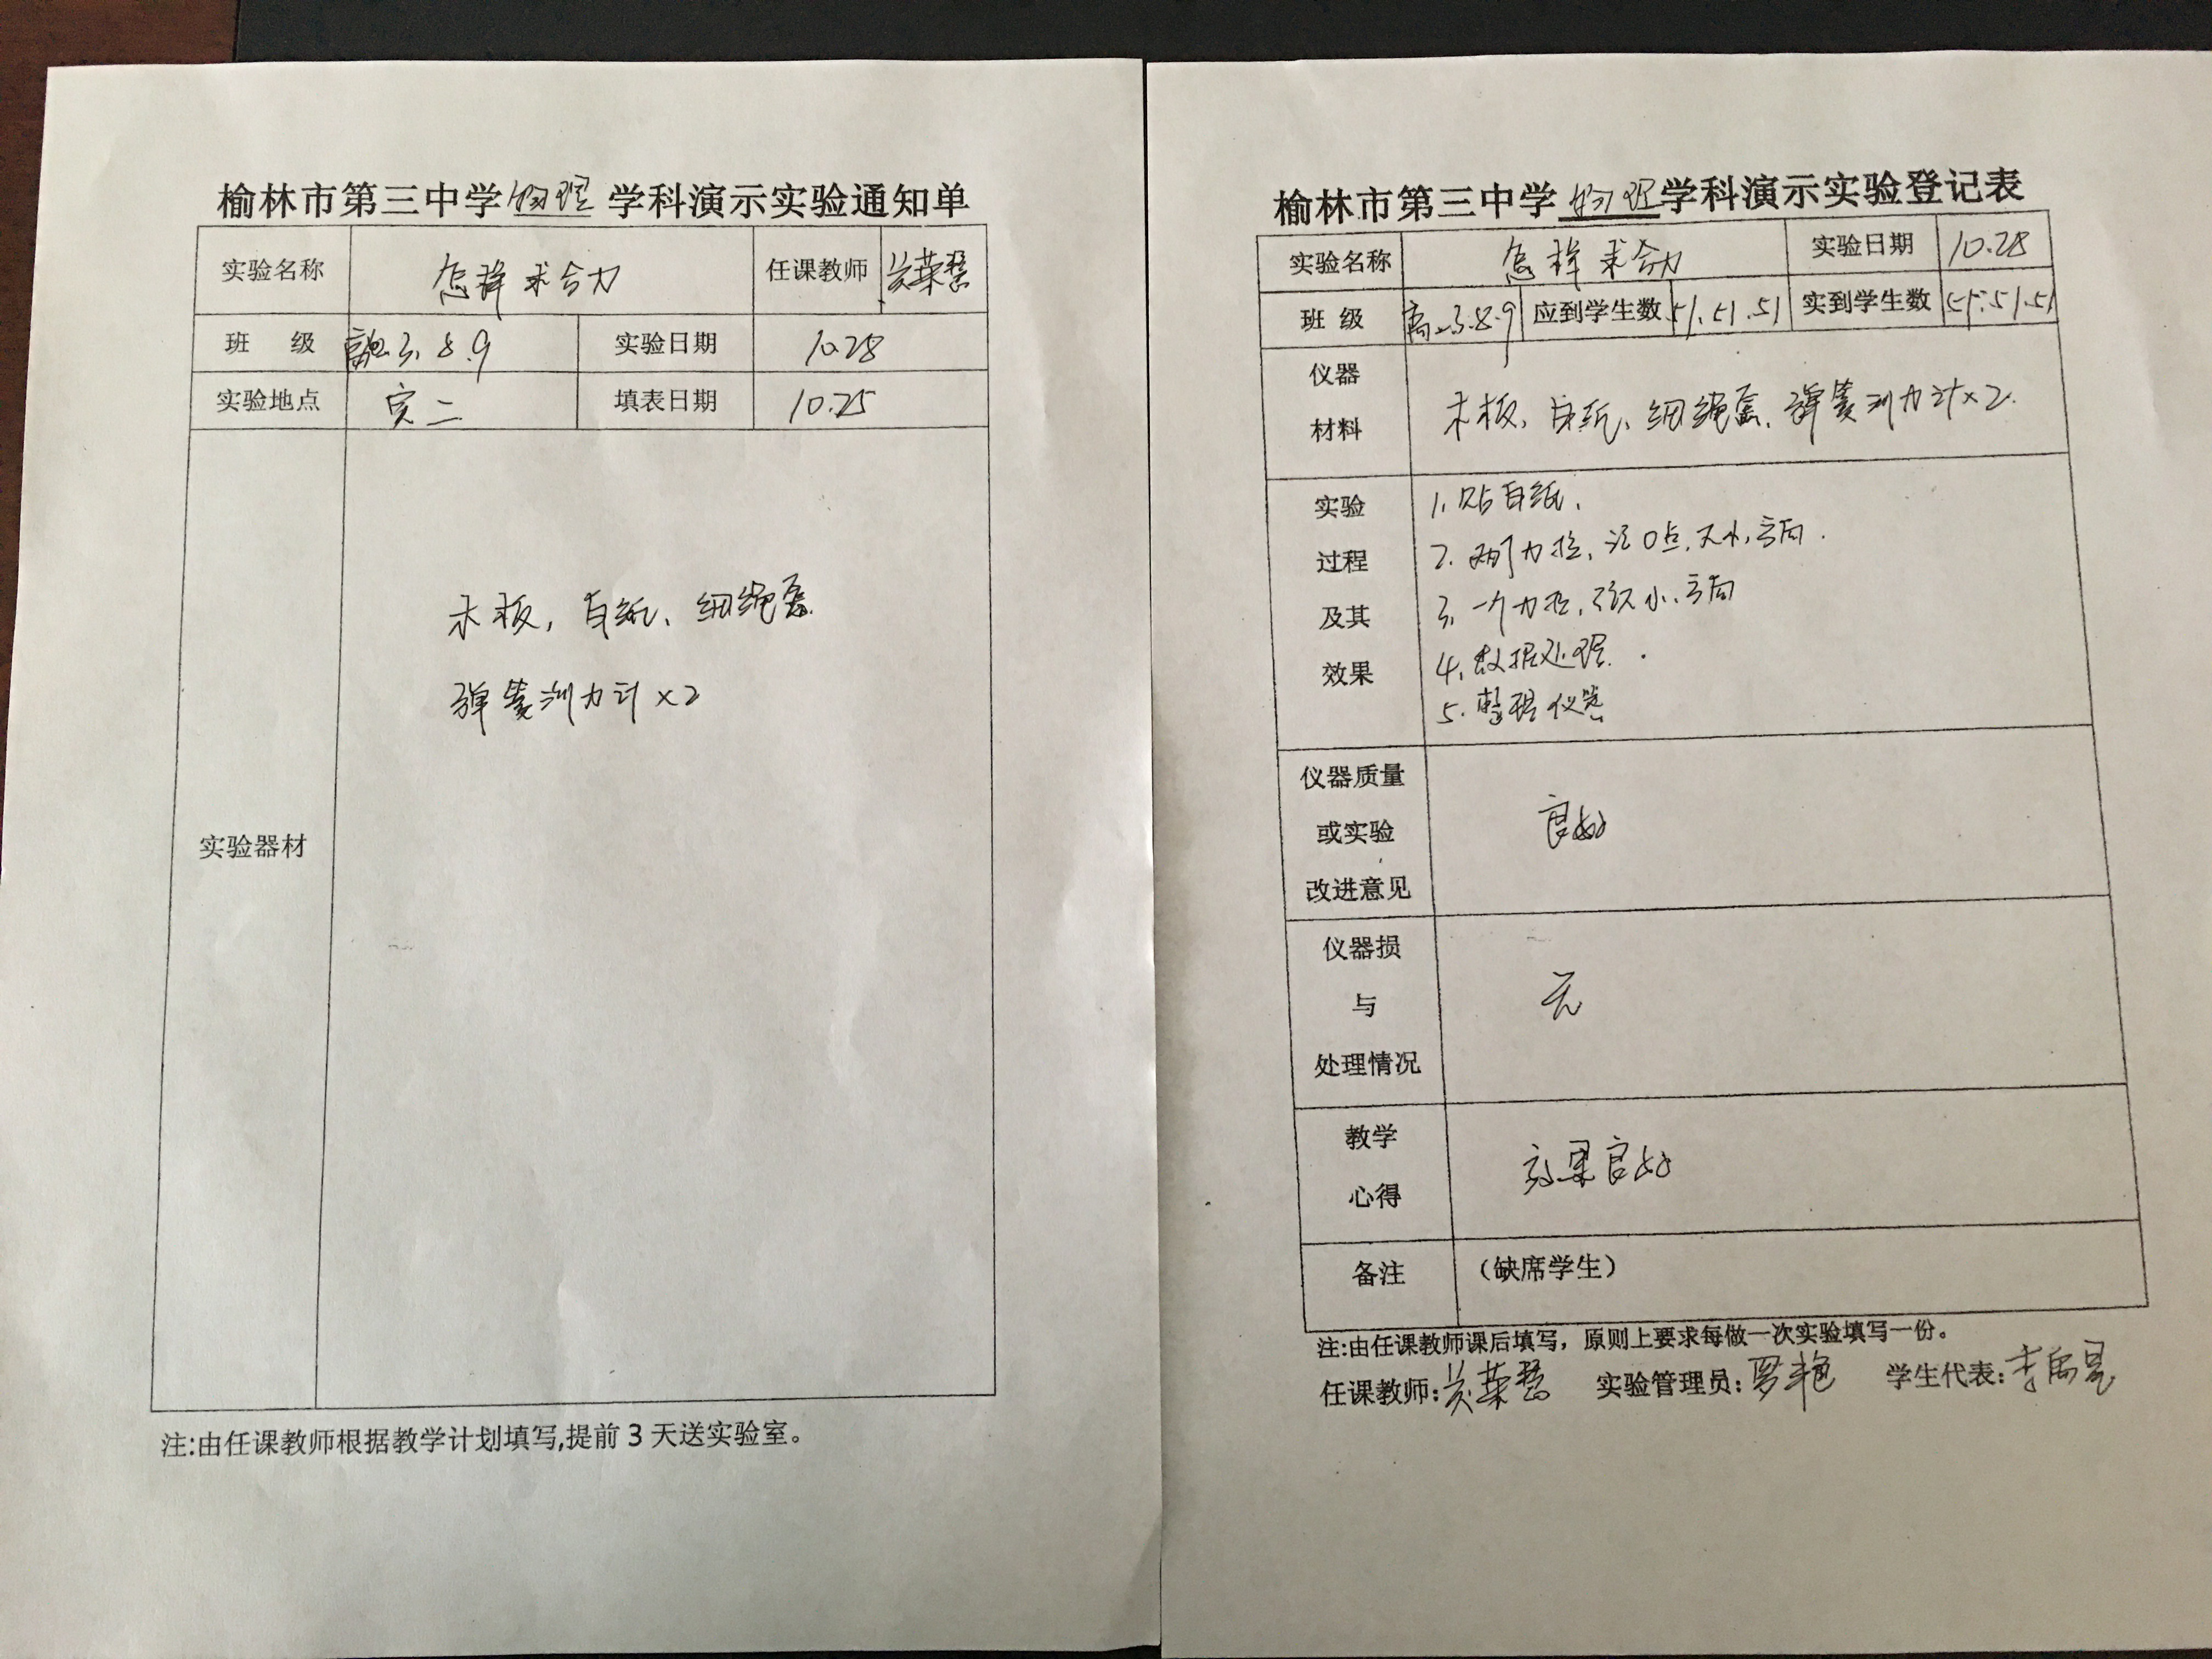 榆林市第三中学物理学科演示实验通知单
实验名称 怎样求合力 任课教师 吴荣慧
班 级 3. 8. 9 实验日期 10.28
实验地点 实二 填表日期 10.25
实验器材
木板, 白纸、细绳套
弹簧测力计×2
注:由任课教师根据教学计划填写,提前3天送实验室。
榆林市第三中学物理学科演示实验登记表
实验名称 怎样求合力 实验日期 10.28
班 级 高一3.8.9 应到学生数 51.51.51 实到学生数 51.51.51
仪器
材料
木板, 白纸、细绳套、弹簧测力计×2.
实验
过程
及其
效果
1. 贴白纸.
2. 两个力拉, 记O点, 大小, 方向.
3. 一个力拉, 大小、方向
4. 数据处理.
5. 整理仪器
仪器质量
或实验
改进意见
良好
仪器损
与
处理情况
无
教学
心得
效果良好
备注 (缺席学生)
注:由任课教师课后填写，原则上要求每做一次实验填写一份。
任课教师:吴荣慧 实验管理员:罗艳 学生代表:李